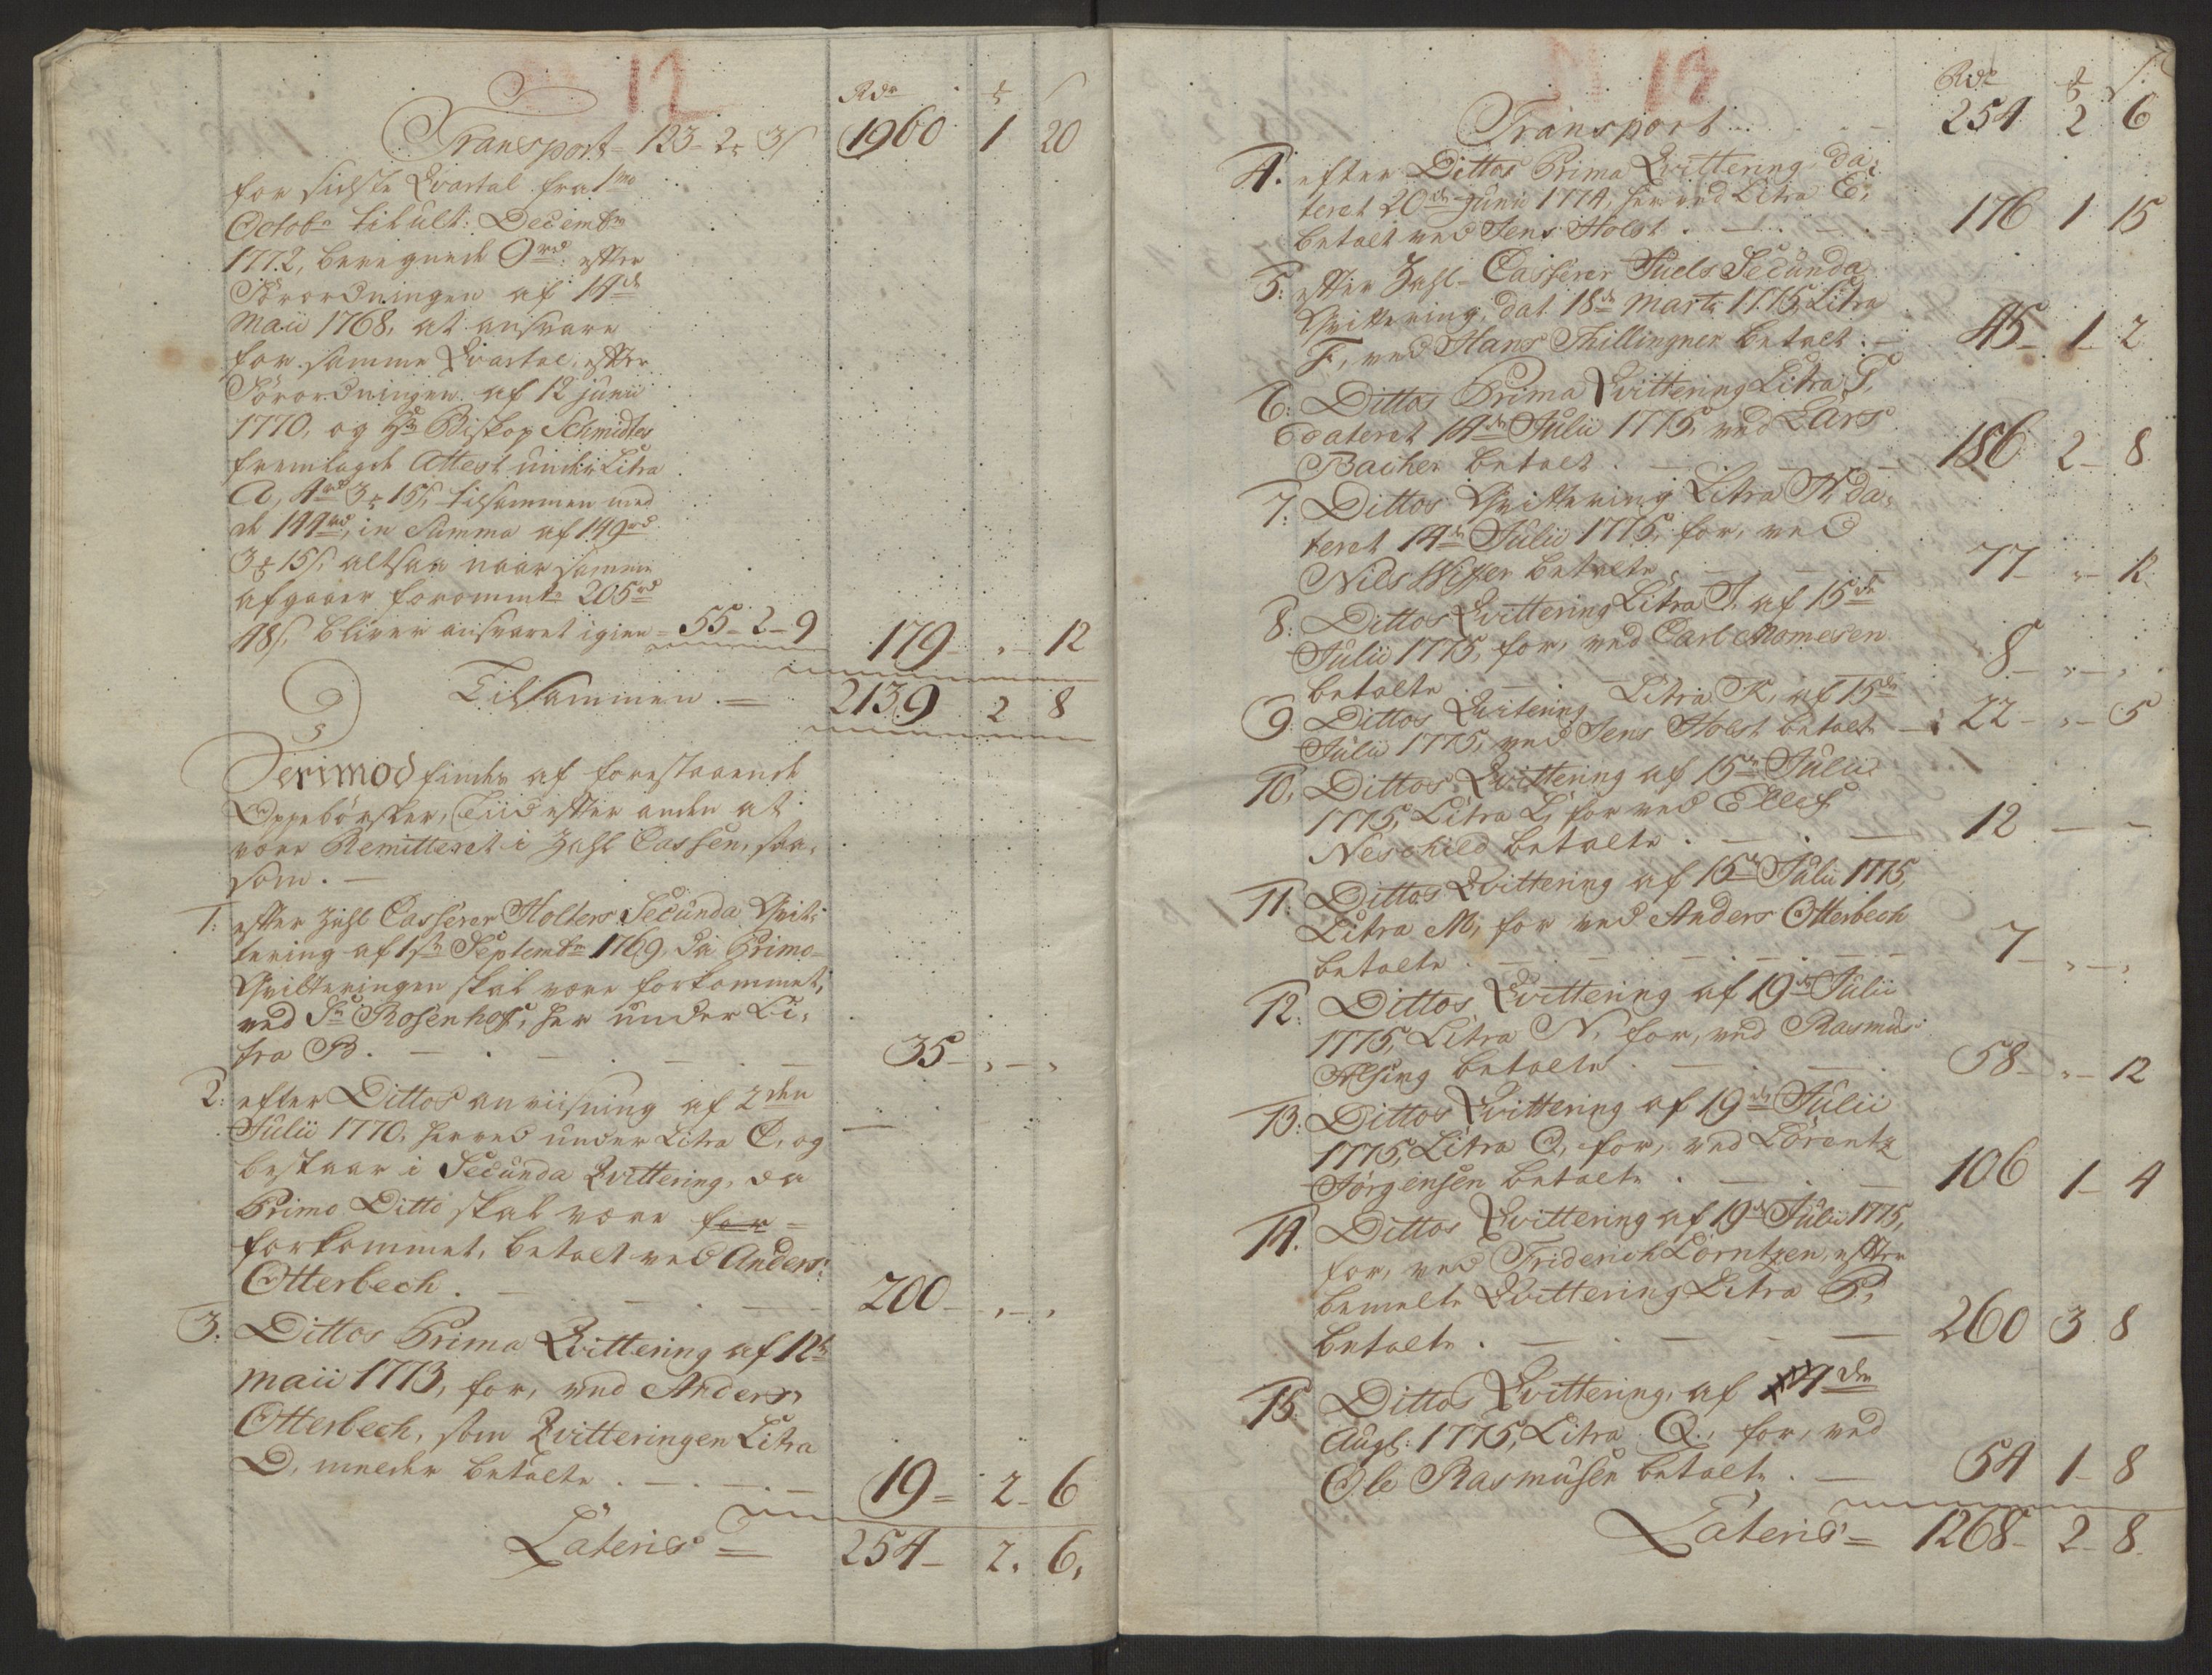 12
Rdr ꝑ ß
Transport 123 - 2 - 3 ß 1960 1 20
for sidste Qvartal fra 1mo
Octobr til ult: Decembr
1772, beregnede 0rd: efter
Forordningen af 14de
Maii 1768, at ansvare
for samme Qvartal, efter
Forordningen af 12 junii
1770, og Hr Biskop Schmidtes
fremlagde Attest under Litra
A, 4rd 3 15 ß, tilsammen med
de 144rd, in Summa af 149rd
3 15 ß, altsaa naar samme
afgaaer forommte 205rd
48 ß, bliver ansvaret igien = 55 - 2 - 9 179 - „ - 12
Tilsammen = 2139 2 8
Herimod findes af forestaaende
Oppebørsler, Tiid efter anden at
være Remitteret i Zahl Cassen, saa-
som. —
1: efter Zahl Casserer Holters Secunda Qvit-
tering af 1ste Septembr 1769, da Primo
Qvitteringen skal være forkommet,
ved Sr Rosenhoff, her under Li-
tra B. — 35 - „ - „
2: efter Dittos anviisning af 2den
Julii 1770, herved under Litra C, og
bestaar i Secunda Qvittering, da
Primo Ditto skal være for-
forkommet, betalt ved Anders
Otterbech. — 200 - „ - „
3: Dittos Prima Qvittering af 12te
Maii 1773, for, ved Anders
Otterbech, som Qvitteringen Litra
D, melder betalte. — 19 - 2 - 6
Lateris = 254 - 2. 6.
13
Rdr ꝑ ß
Transport 254 2 6
4. efter Dittos Prima Qvittering da-
teret 20de Junii 1774, her ved Litra E,
betalt ved Jens Holst. — 176 1 15
5: efter Zahl-Casserer Juels Secunda
Qvittering, dat 18de Marti 1775, Litra
F, ved Hans Thillingner betalt. — 45 - 1 - 2
6: Dittos Prima Qvittering Litra G,
dateret 14de Julii 1775, ved Lars
Bacher betalt. — 186 2 - 8
7: Dittos Qvittering Litra H, da-
teret 14de Julii 1775, for, ved
Nils Wisser betalte. — 77 - „ - 12
8: Dittos Qvittering Litra I, af 15de
Julii 1775, for, ved Carl Momesen
betalte — 8 - „ - „
9: Dittos Qvitering Litra K, af 15de
Julii 1775, ved Jens Holst betalte — 22 - „ - 5
10: Dittos Qvittering af 15de Julii
1775, Litra L, for ved Ellef
Neschild betalte. — 12 - -
11: Dittos Qvittering af 15de Julii 1775,
Litra M, for ved Anders Otterbech
betalte. — 7 - „ - „
12: Dittos Qvittering af 19de Julii
1775, Litra N, for, ved Rasmus
Alsing betalte — 58 - „ - 12
13: Dittos Qvittering af 19de Julii
1775, Litra O, for, ved Lörentz
Jörgensen betalte. — 106 1 - 4
14. Dittos Qvittering af 19de Julii 1775,
for, ved Friderich Lörntzen, efter
bemelte Qvittering Litra P,
betalte. — 260 3 8
15 Dittos Qvittering, af 4den
Augs: 1775, Litra Q., for, ved
Ole Rasmusen betalte. — 54 1 - 8
Lateris = 1268 - 2 - 8